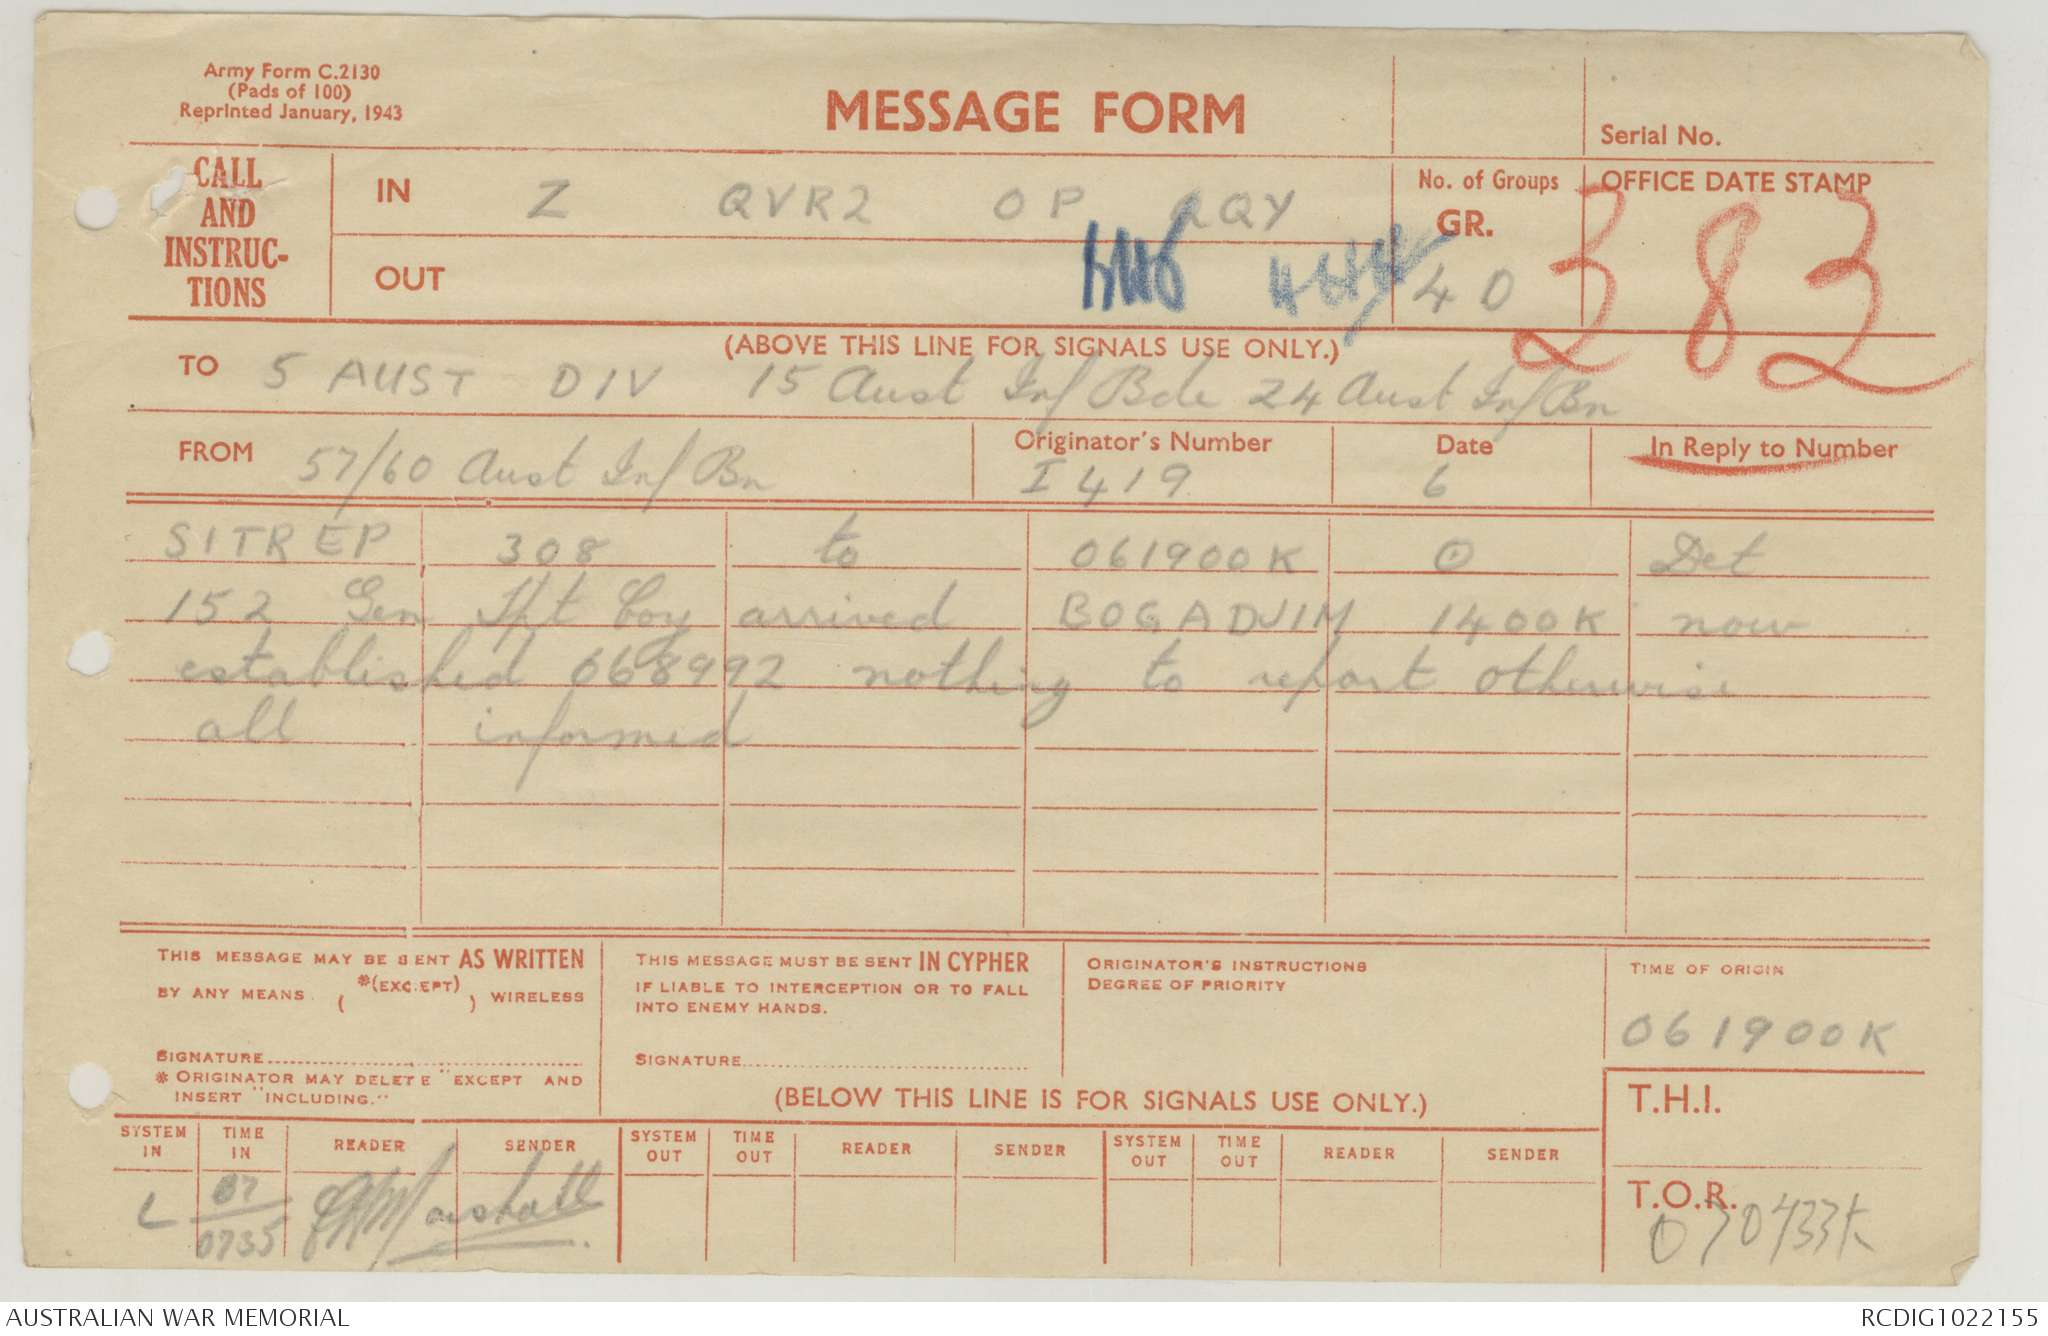 Army Form C.2130
(Pads of 100)
Reprinted January, 1943
MESSAGE FORM
Serial No.
CALL AND INSTRUC-TIONS
IN Z QVR2 OP QQY
OUT
No. of Groups
GR.
40
OFFICE DATE STAMP
383
(ABOVE THIS LINE FOR SIGNALS USE ONLY.)
TO 5 AUST DIV 15 Aust Inf Bde 24 Aust Inf Bn
FROM 57/60 Aust Inf Bn
Originator's Number
I 419
Date
6
In Reply to Number
SITREP 308 to 061900K O Det
152 Gen Tpt Coy arrived BOGADJIM 1400K now
established 668992 nothing to report otherwise
all informed
THIS MESSAGE MAY BE SENT AS WRITTEN
BY ANY MEANS *(EXCEPT) ( ) WIRELESS
SIGNATURE
* ORIGINATOR MAY DELETE "EXCEPT AND
INSERT "INCLUDING."
THIS MESSAGE MUST BE SENT IN CYPHER
IF LIABLE TO INTERCEPTION OR TO FALL
INTO ENEMY HANDS.
SIGNATURE
ORIGINATOR'S INSTRUCTIONS
DEGREE OF PRIORITY
TIME OF ORIGIN
061900K
(BELOW THIS LINE IS FOR SIGNALS USE ONLY.)
T.H.I.
T.O.R.
070433K
SYSTEM IN TIME IN READER SENDER SYSTEM OUT TIME OUT READER SENDER SYSTEM OUT TIME OUT READER SENDER
L 07/0735 Marshall
AUSTRALIAN WAR MEMORIAL
RCDIG1022155